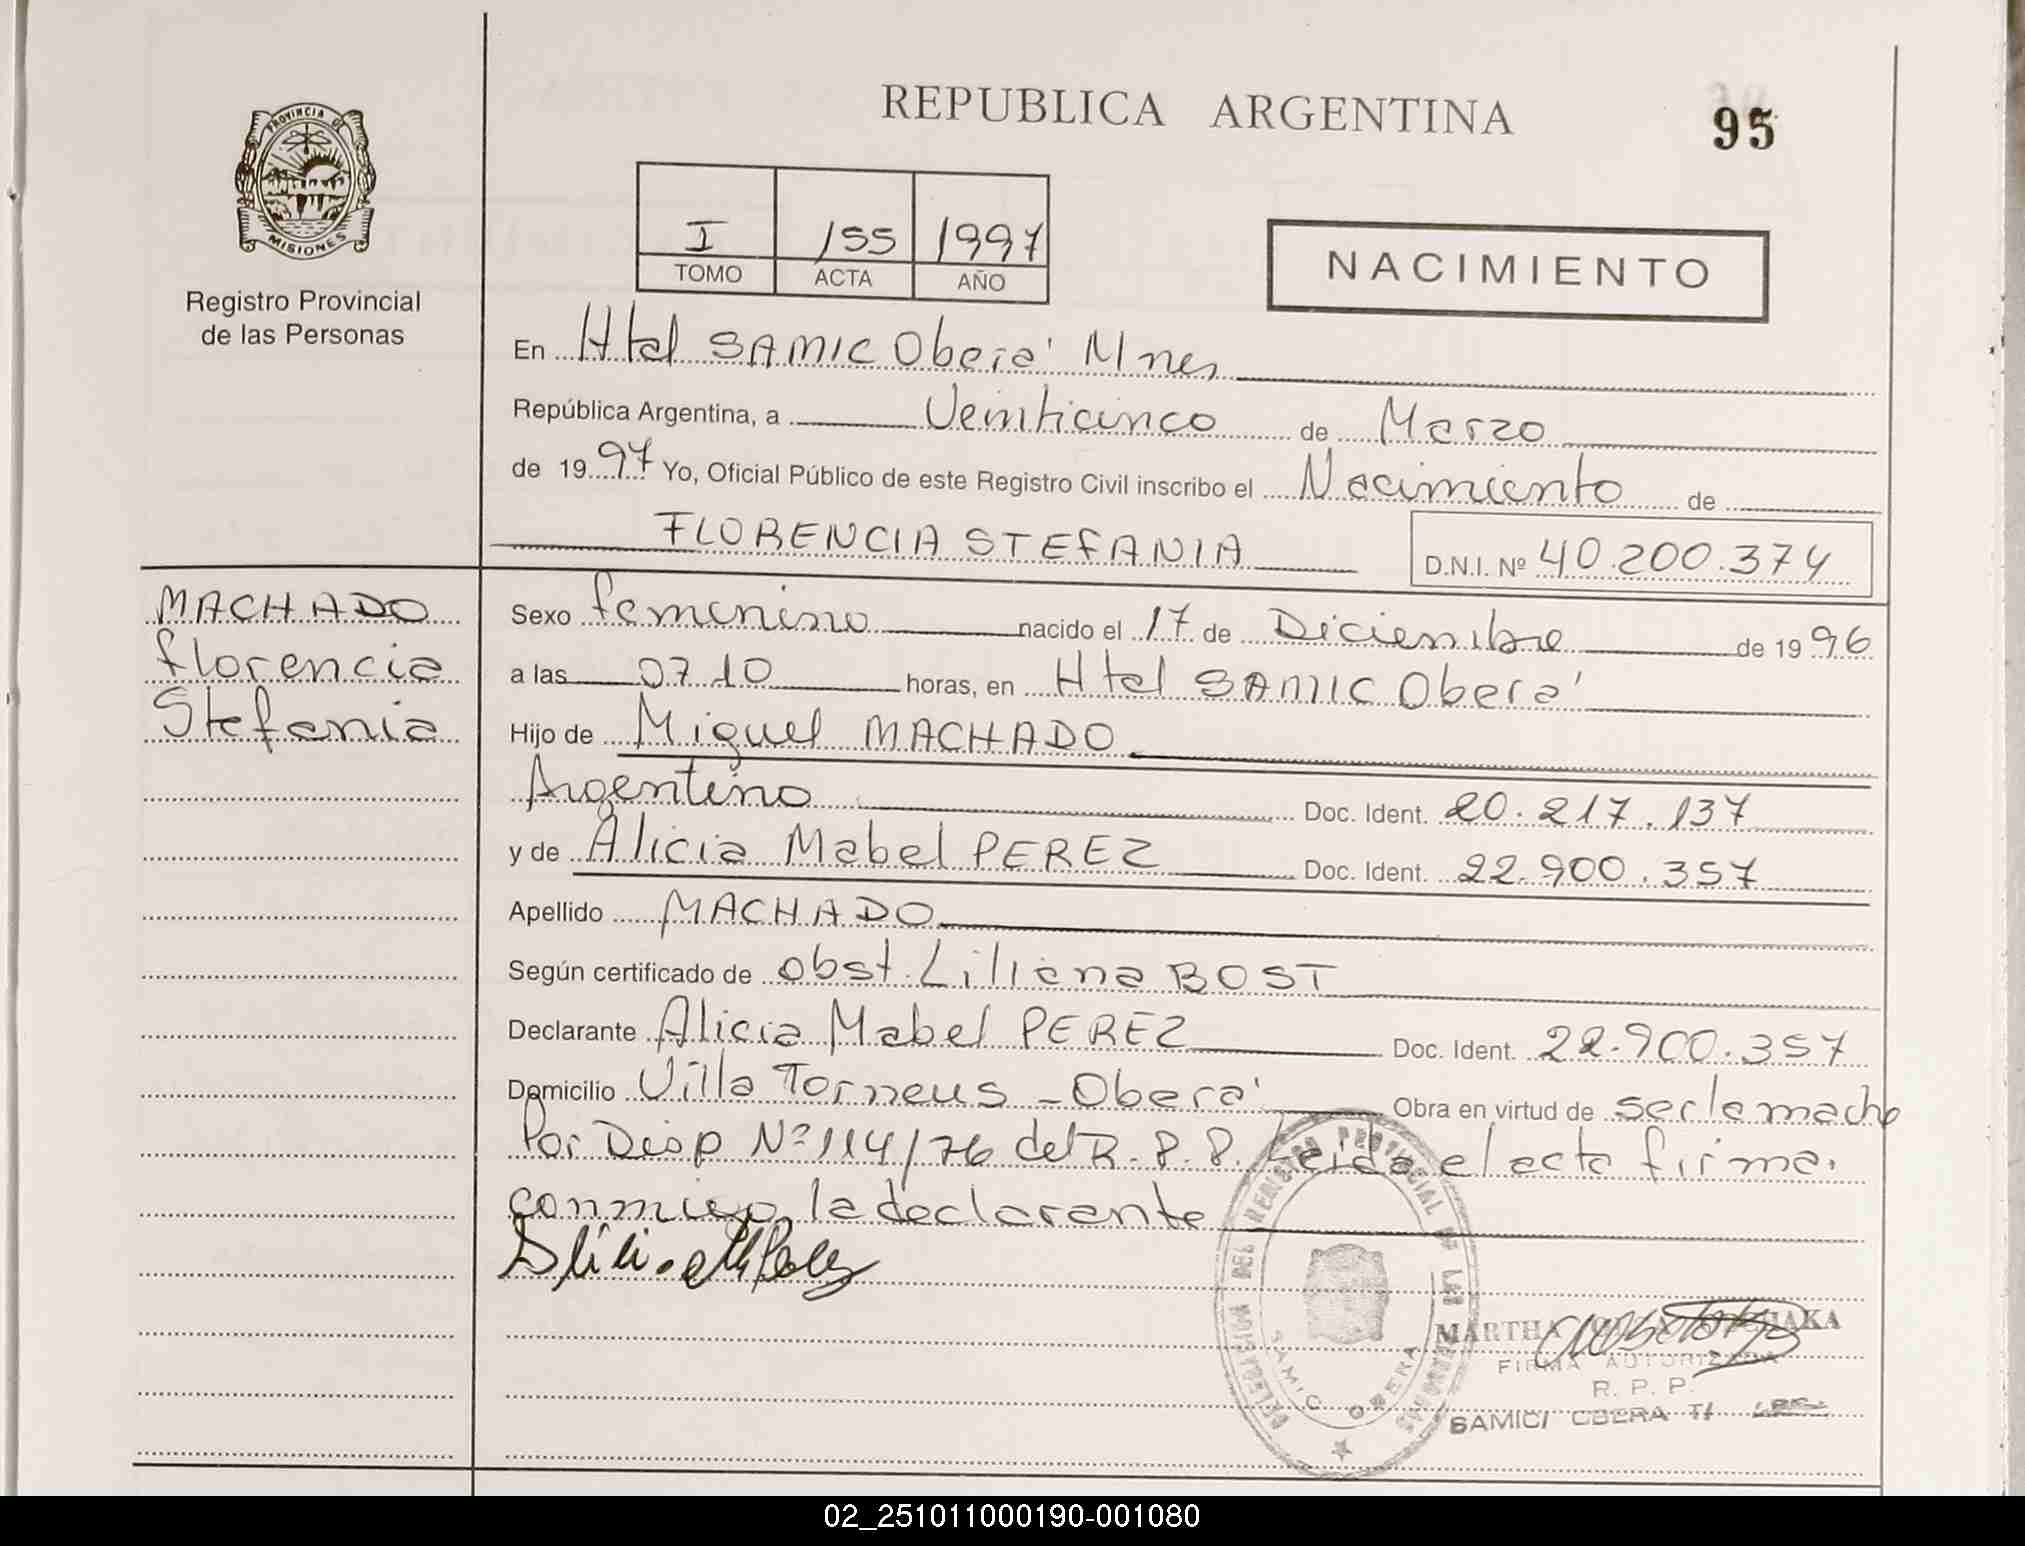 REPUBLICA ARGENTINA
95
PROVINCIA DE
MISIONES
Registro Provincial
de las Personas
I 155 1997
TOMO ACTA AÑO
NACIMIENTO
En Htal SAMIC Oberá Mnes
República Argentina, a Veinticinco de Marzo
de 1997 Yo, Oficial Público de este Registro Civil inscribo el Nacimiento de
FLORENCIA STEFANIA
D.N.I. Nº 40.200.374
MACHADO
Florencia
Stefania
Sexo femenino nacido el 17 de Diciembre de 1996
a las 07 10 horas, en Htal SAMIC Oberá
Hijo de Miguel MACHADO
Argentino Doc. Ident. 20.217.137
y de Alicia Mabel PEREZ Doc. Ident. 22.900.357
Apellido MACHADO
Según certificado de obst. Liliana BOST
Declarante Alicia Mabel PEREZ Doc. Ident. 22.900.357
Domicilio Villa Torneus - Oberá Obra en virtud de
Por Disp Nº 114/76 del R.P.P. Leida el acta firma
conmigo la declarante
DELEGACION DEL REGISTRO PROVINCIAL DE LAS PERSONAS
SAMIC OBERA
MARTHA
FIRMA AUTORIZADA
R. P. P.
SAMIC OBERA
02_251011000190-001080